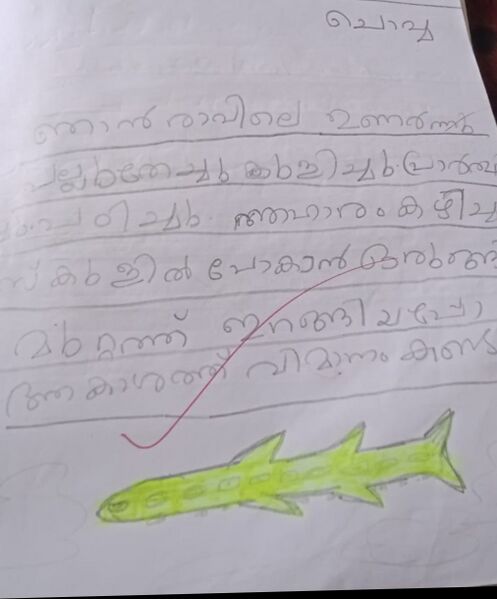 ചൊവ്വ
ഞാൻ രാവിലെ ഉണർന്നു
പല്ലുതേച്ചു കുളിച്ചു പ്രാർത്ഥ
ആഹാരം കഴിച്ച
സ്കൂളിൽ പോകാൻ ഒരുങ്ങി
മുറ്റത്ത് ഇറങ്ങിയപ്പോ
ആകാശത്ത് വിമാനം കണ്ടു